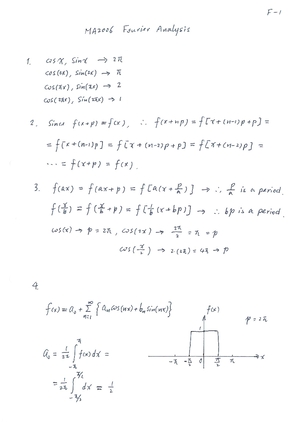 F-1
MA2006 Fourier Analysis
1. cos x, sin x → 2π
cos(2x), sin(2x) → π
cos(πx), sin(πx) → 2
cos(2πx), sin(2πx) → 1
2. Since f(x+p) = f(x), ∴ f(x+np) = f[x+(n-1)p+p] =
= f[x+(n-1)p] = f[x+(n-2)p+p] = f[x+(n-2)p] =
... = f(x+p) = f(x).
3. f(ax) = f(ax+p) = f[a(x+p/a)] → ∴ p/a is a period.
f(x/b) = f(x/b+p) = f[1/b(x+bp)] → ∴ bp is a period.
cos(x) → p = 2π, cos(2x) → 2π/2 = π = p
cos(x/2) → 2·(2π) = 4π → p
4.
f(x) = a₀ + ∑_{n=1}^{∞} {aₙ cos(nx) + bₙ sin(nx)}
f(x)
p = 2π
1
a₀ = 1/2π ∫_{-π}^{π} f(x) dx =
-π -π/2 0 π/2 π x
= 1/2π ∫_{-π/2}^{π/2} dx = 1/2